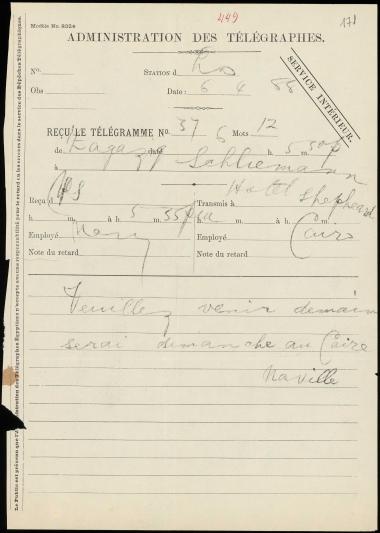 Modèle No. 802a
449
171
ADMINISTRATION DES TÉLÉGRAPHES.
No.
STATION d
Obs
DATE: 6 4 88
SERVICE INTÉRIEUR.
REÇU LE TÉLÉGRAMME No. 37 6 Mots 12
de Zagazig à h. 5 m. 30 p
à Schliemann
Hotel Shepheard
Reçu d
Transmis à
h m à h 5 m 55 p
h m à h m
Cairo
Employé
Employé
Note du retard
Note du retard
Veuillez venir demain
serai dimanche au Caire
Naville
Le Public est prévenu que l'Administration des Télégraphes Égyptiens n'accepte aucune responsabilité pour le retard ou les erreurs dans le service des Dépêches Télégraphiques.